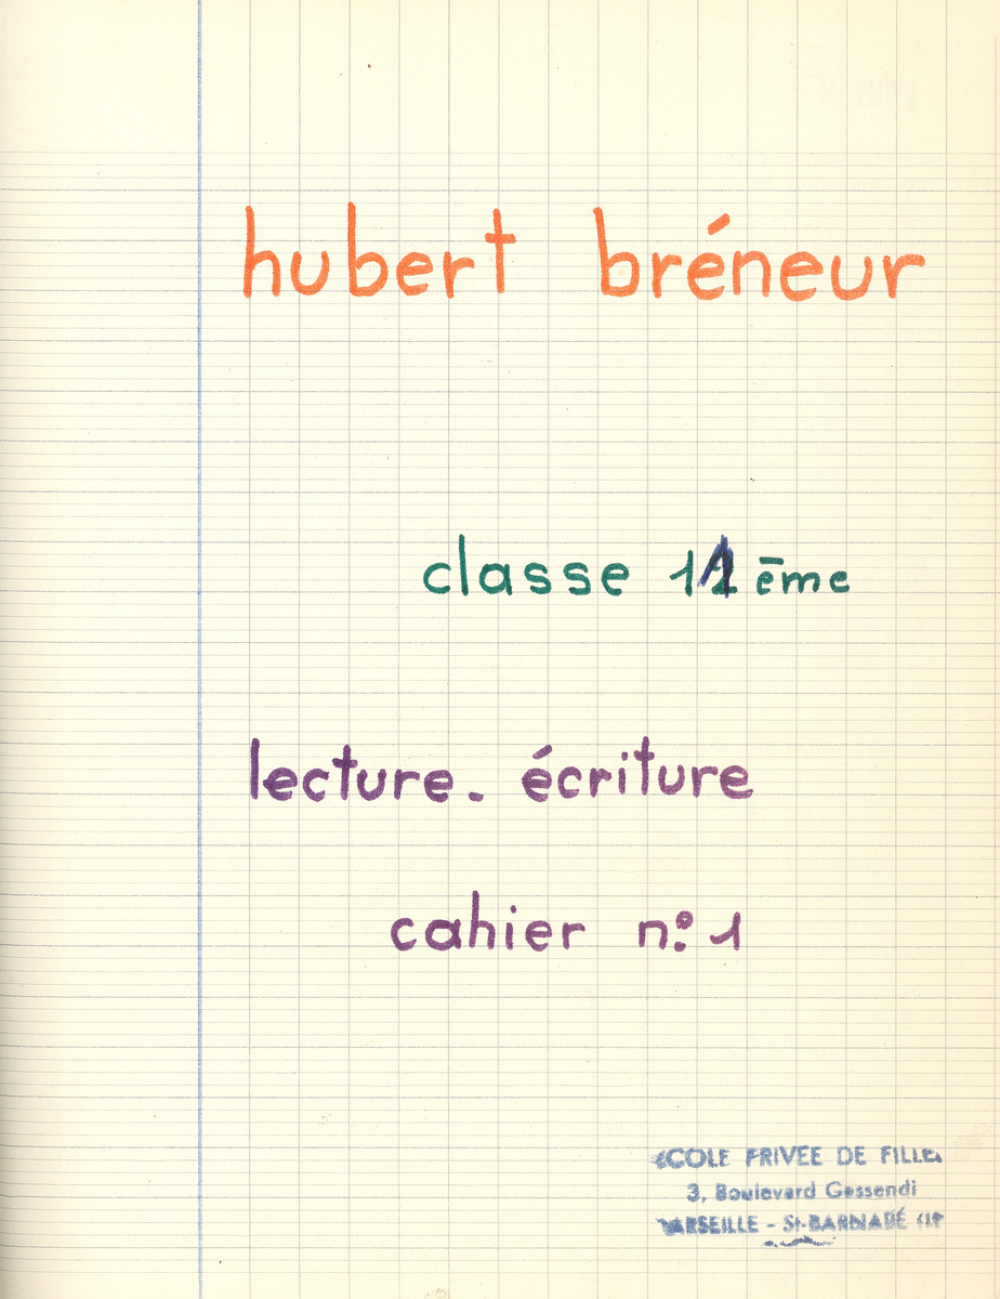 hubert bréneur
classe 11 ēme
lecture. écriture
cahier n° 1
ECOLE PRIVEE DE FILLES
3, Boulevard Gassendi
MARSEILLE - St-BARNABÉ